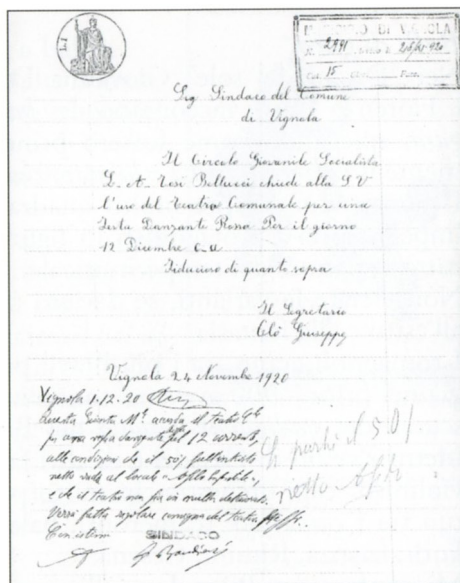 L.1
MUNICIPIO DI VIGNOLA
N. 2991
Cat. 15 Fasc.
Sig Sindaco del Comune
di Vignola
Il Circolo Giovanile Socialista
L. A. Tosi Bellucci chiede alla S V
l'uso del Teatro Comunale per una
Festa Danzante Rossa Per il giorno
12 Dicembre c.a
Fiducioso di quanto sopra
Il Segretario
Clò Giuseppe
Vignola 24 Novembre 1920
Vignola 1-12-20
Questa Giunta M. accorda il teatro
per una veglia danzante pel 12 corrente,
alle condizioni che il 50%
netto vada al locale Asilo Infantile,
e che il teatro non sia in
Verrà fatta regolare consegna del teatro
Con istima
SINDACO
Si purché il 50%
netto Asilo